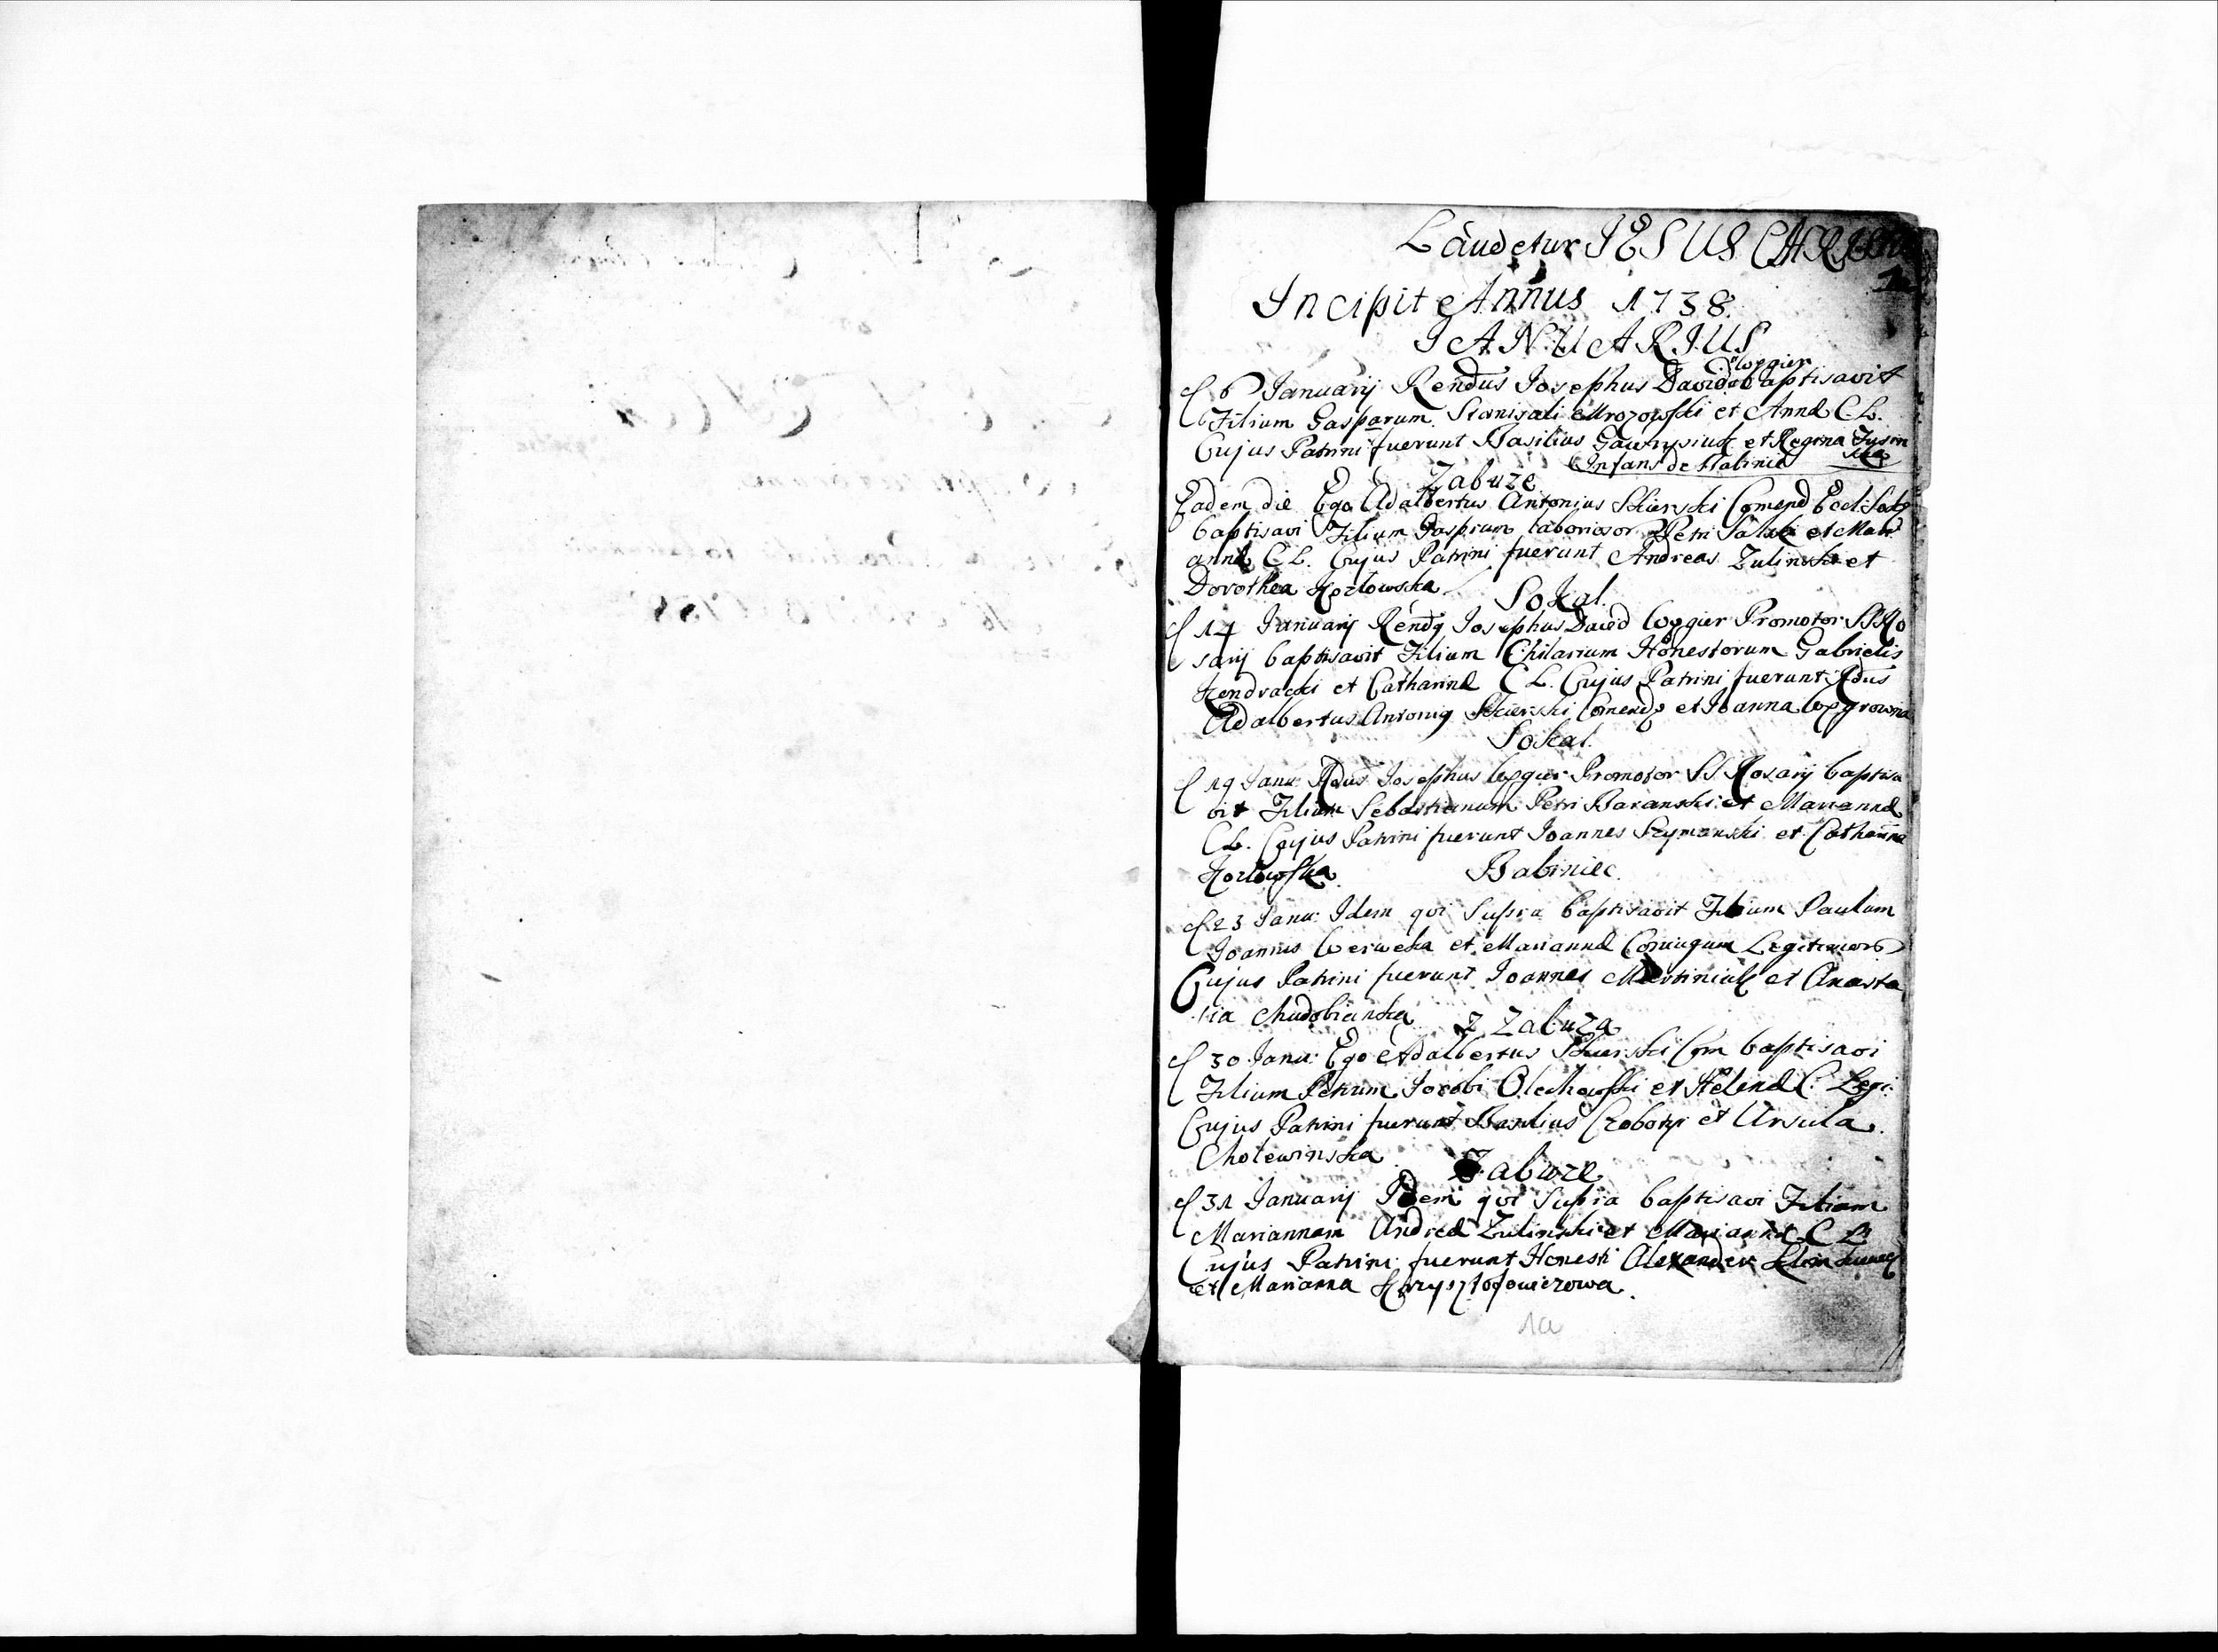 Laudetur JESUS CHRISTUS
1
Incipit Annus 1738.
JANUARIUS
Woggier
6 Januarij Rendus Josephus David baptisavit
Filium Gasparum Stanislai Mrozowski et Annæ C L.
Cujus Patrini fuerunt Basilius Gawrysiuk et Regina
Infans de Babiniec
Zabuze
Eadem die Ego Adalbertus Antonius Skierski Comend Eccl
baptisavi Filium Gasprum laboriosor Petri et Mari
annæ C L. Cujus Patrini fuerunt Andreas Zulinski et
Dorothea Kozlowska
Sokal.
14 Januarij Rendq Josephus David Woggier Promotor SS Ro
sarij baptisavit Filium Chilarium Honestorum Gabrielis
Kendracki et Catharinæ C L. Cujus Patrini fuerunt Rdus
Adalbertus Antoniq Skierski Comend et Joanna
Sokal.
19 Janu: Rdus Josephus Woggier Promotor SS. Rosarij baptisa
vit Filium Sebastianum Petri Baranski et Mariannæ
C L. Cujus Patrini fuerunt Joannes Szymanski et Catharina
Kozlowska.
Babiniec.
23 Janu: Idem qvi supra baptisavit Filium Paulum
Joannis Werweka et Mariannæ Coniugum Legitimor
Cujus Patrini fuerunt Joannes Martiniuk et Anasta
sia Chudobianka
z Zabuza
30 Janu: Ego Adalbertus Skierski Com baptisavi
Filium Petrum Jacobi Olechowski et Helenæ C. Legi:
Cujus Patrini fuerunt Basilius et Ursula
Cholewinska
Zabuze
31 Januarij Idem qvi supra baptisavi Filiam
Mariannam Andreæ Zulinski et Mariannæ C L
Cujus Patrini fuerunt Honesti Alexander
et Marianna Krzysztofowiczowa.
1a